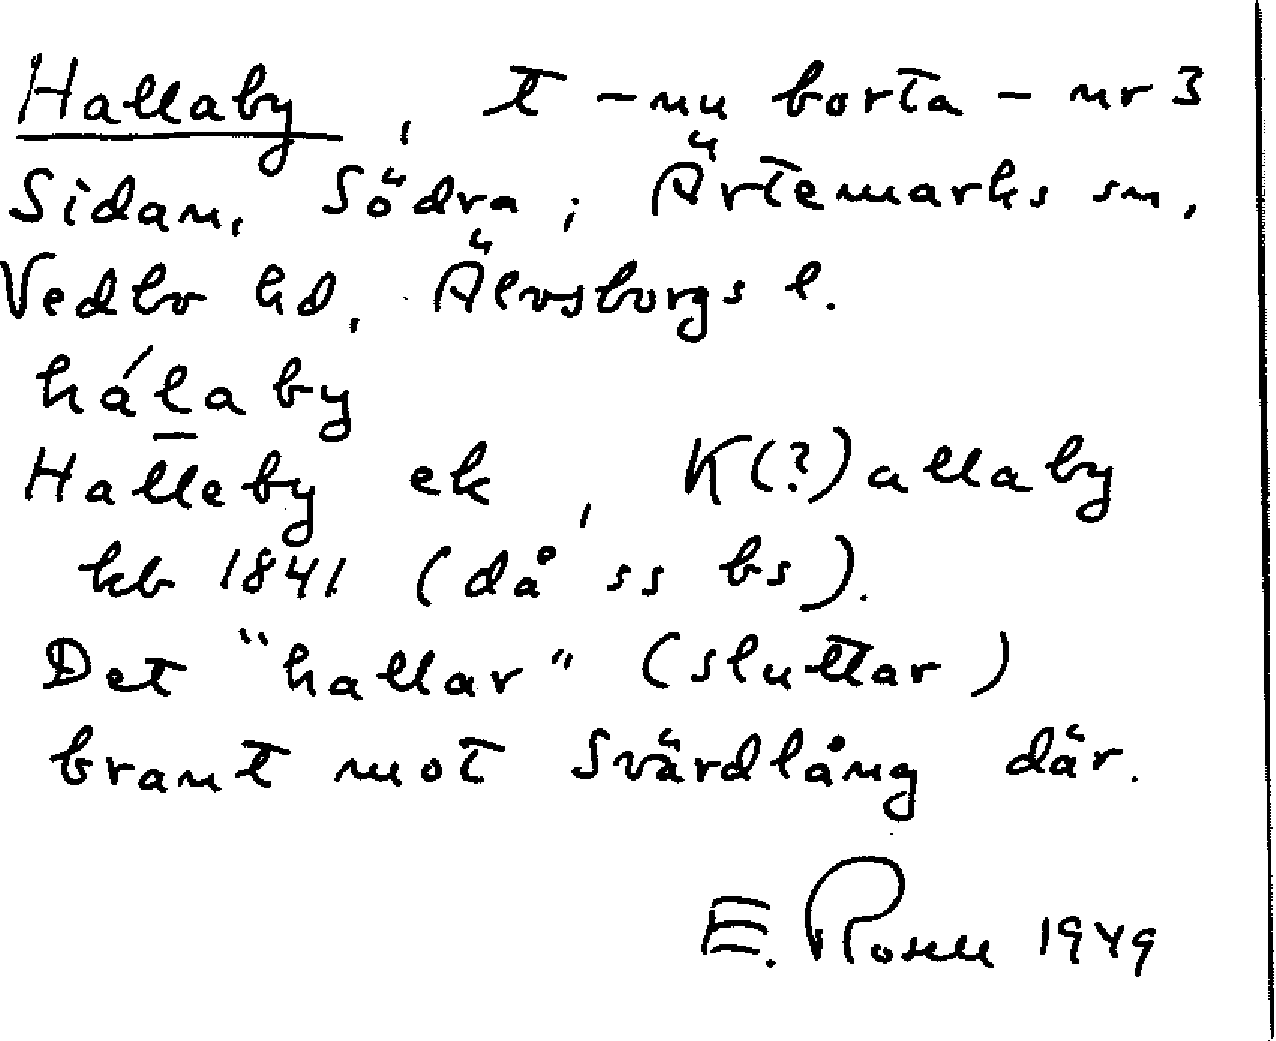 Hallaby, t – nu borta – nr 3
Sidan, Södra; Ärtemarks sn,
Vedbo hd, Älvsborgs l.
hálaby
Halleby ek, K(?)allaby
kb 1841 (då ss bs).
Det "hallar" (sluttar)
brant mot Svärdlång där.
E. Rosell 1949